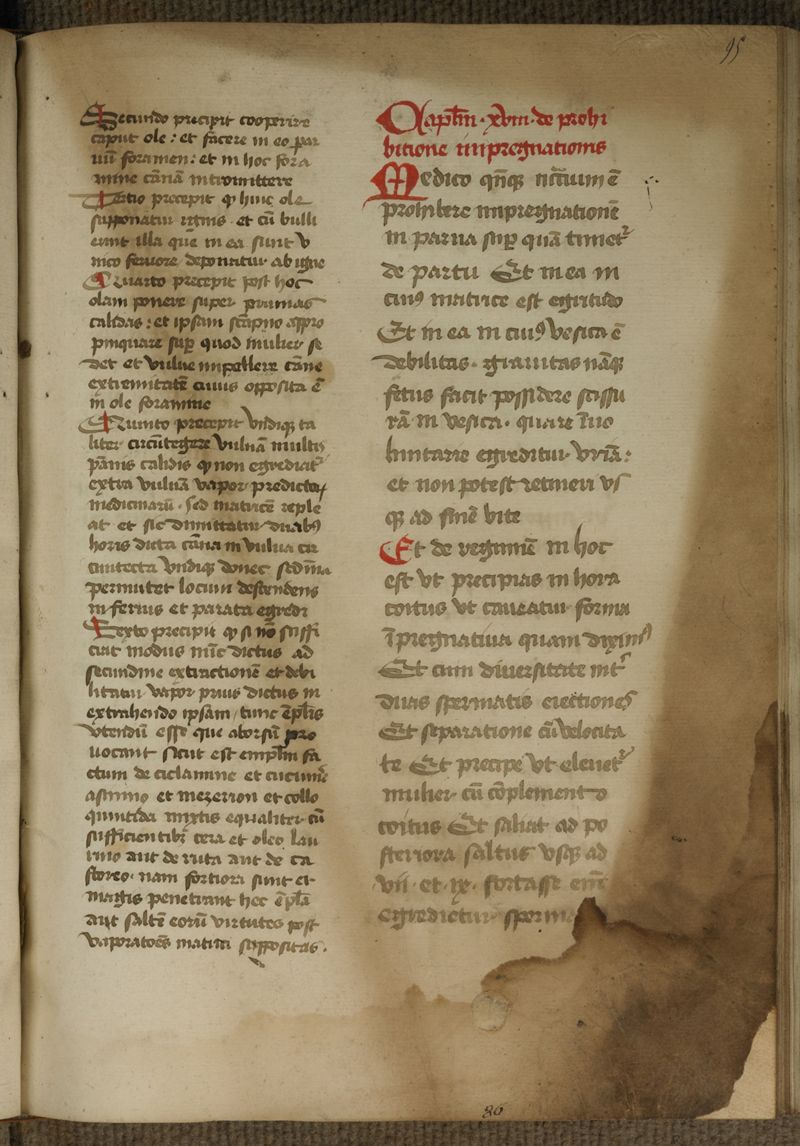 95
Secundo precipit cooperire
caput ole : et facere in eo par
uū foramen : et in hoc fora
mine cānā intromittere
Tertio precepit ꝙ huic ole
supponatur ignis et cū bulli
erint illa que in ea sunt v
nico feruore deponatur ab igne
Quarto precepit post hoc
olam ponere super prunas
calidas : et ipsam scāpno appro
pinquare suꝑ quod mulier se
det et vulue impellere cāne
extremitatē cuius opposita ē
in ole foramine
Quinto precepit vndiqꝫ ta
liter circūtegere vuluā multis
pānis calidis ꝙ non egrediat᷑
extra vuluā vapor predictaꝝ
medicinarū . sed matricē reple
at et sic dimittatur duabꝰ
horis dicta cāna in vulua cir
cūtecta vndiqꝫ donec secūdīa
permutet locum descendens
inferius et parata egredi
Sexto precipit ꝙ si nō suffi
ciat modus nūc dictus ad
secundine extractionē et debi
litatur vapor prius dictus in
extrahendo ipsam / tunc ēplīs
vtendū esse que aborsū pro
uocant sicut est emplm̄ fa
ctum de ciclamine et cucume᷑
asinino et mezereon et collo
quintida mixtis equaliter cū
sufficientibꝫ cera et oleo lau
rino aut de ruta aut de ca
storeo . nam fortiora sunt et
magis penetrant hec ēpla
aut saltē eorū virtutes post
vaporatōēs matrici suppositas .
Caplm̄ . xviii . de prohi
bitione impregnationis
Medico qn̄qꝫ nc̄cium ē
prohibere impregnationē
in parua suꝑ quā timet᷑
de partu Et in ea in
cuiꝰ matrice est egritudo
Et in ea in cuiꝰ vesica ē
debilitas . grauitas nāqꝫ
fetus facit possidere scissu
rā in vesica . quare sine
luntarie egreditur vrīa :
et non potest retineri vs
qꝫ ad finē vite
Et de regimīe in hoc
est vt precipias in hora
coitus vt caueatur forma
īpregnatiua quam diximꝰ
Et cum diuersitate int᷑
duas spermatis eiectiones
Et separatione cū velocita
te Et precipe vt eleuet᷑
mulier cū cōplemento
coitus Et saliat ad po
steriora saltus vsqꝫ ad
vii . et . ix . fortasse enī
egredietur sperma
86